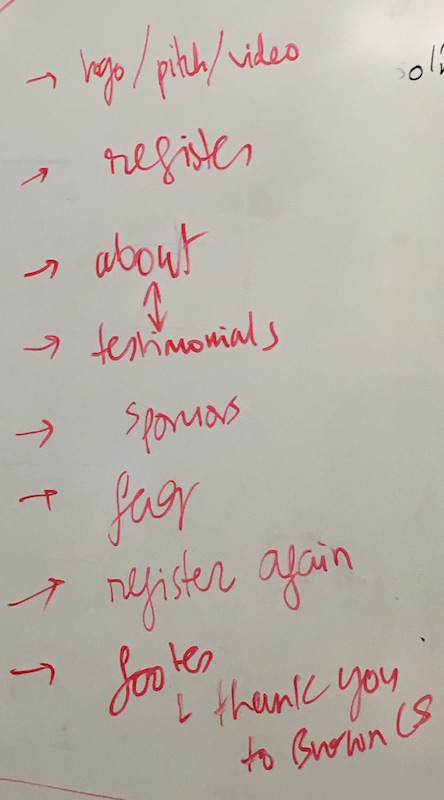 → logo/pitch/video
→ register
→ about
↕
→ testimonials
→ sponsors
→ faq
→ register again
→ footer
↳ thank you
to Brown CS